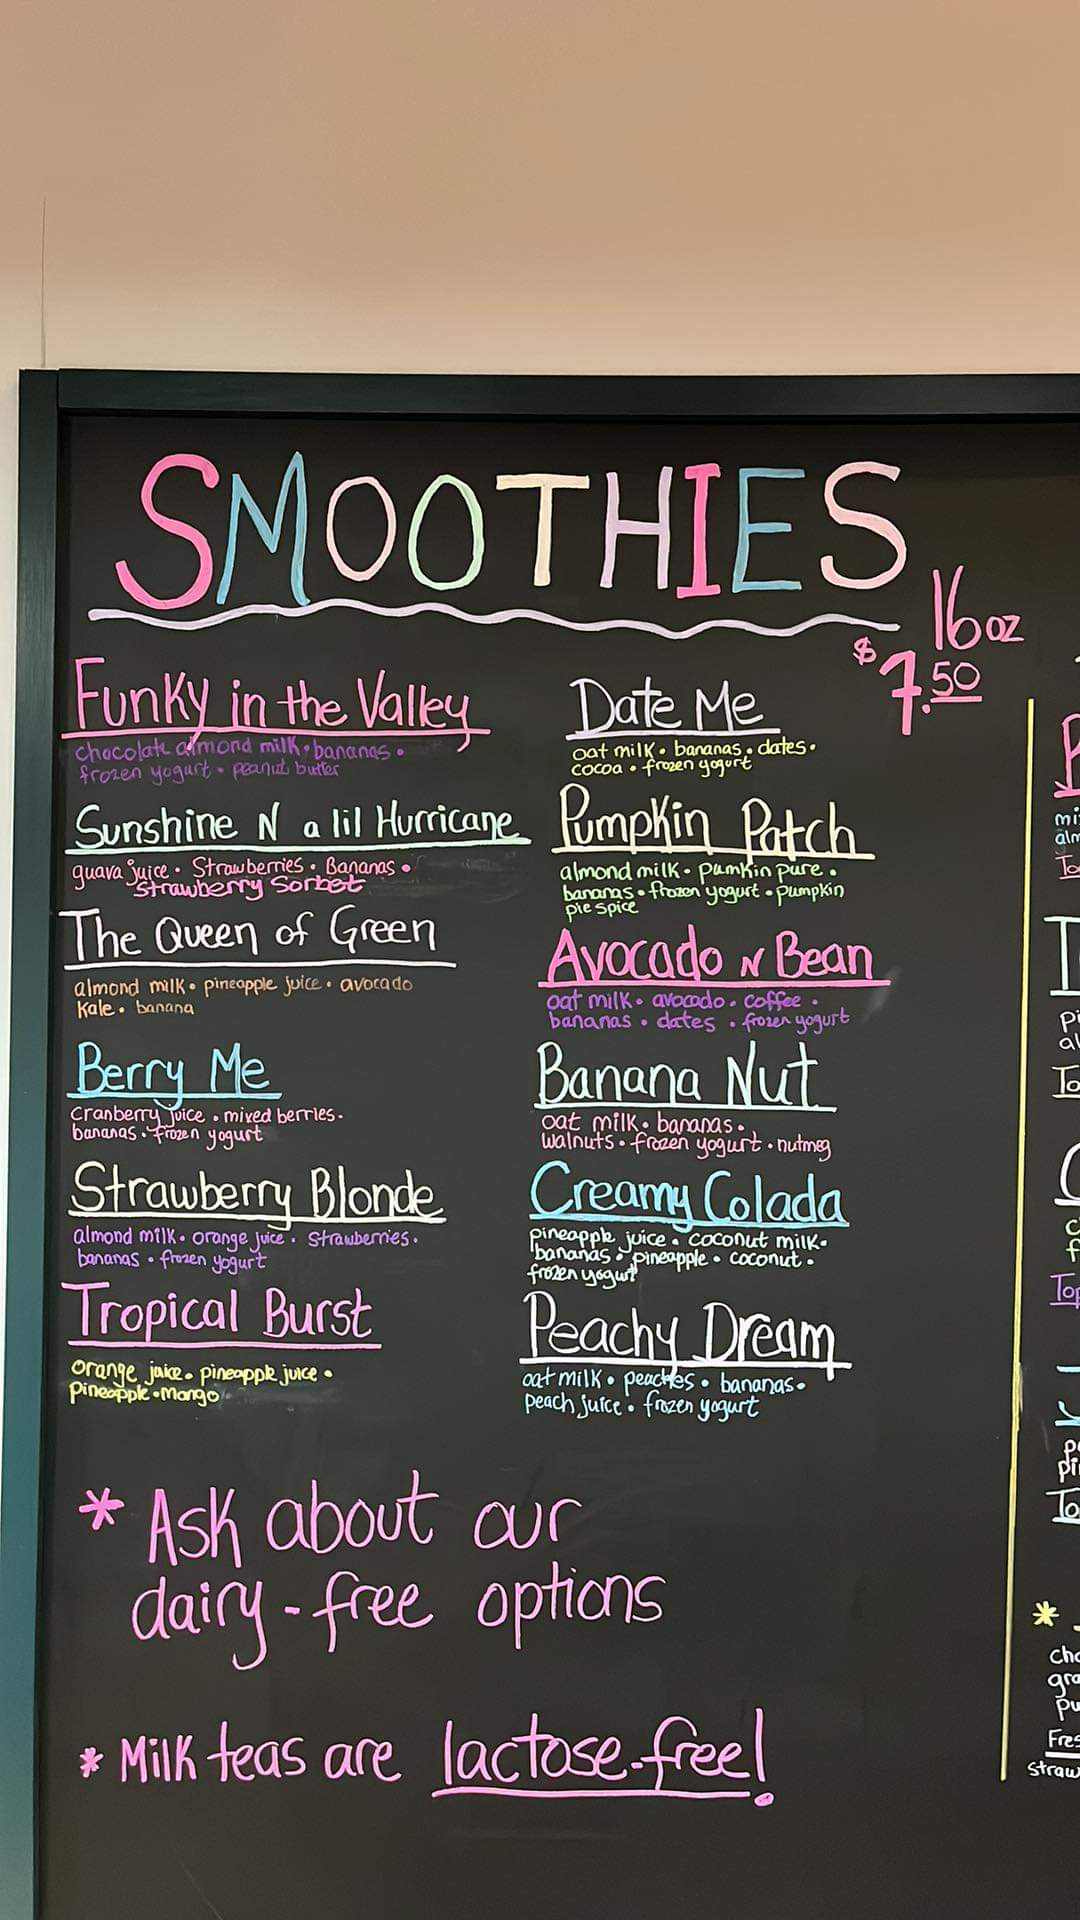 SMOOTHIES
16oz
$7.50
Funky in the Valley
chocolate almond milk • bananas •
frozen yogurt • peanut butter
Sunshine N a lil Hurricane
guava juice • Strawberries • Bananas •
Strawberry Sorbet
The Queen of Green
almond milk • pineapple juice • avocado
Kale • banana
Berry Me
cranberry juice • mixed berries •
bananas • frozen yogurt
Strawberry Blonde
almond milk • orange juice • strawberries •
bananas • frozen yogurt
Tropical Burst
orange juice • pineapple juice •
pineapple • mango
Date Me
oat milk • bananas • dates •
cocoa • frozen yogurt
Pumpkin Patch
almond milk • pumkin pure •
bananas • frozen yogurt • pumpkin
pie spice
Avocado N Bean
oat milk • avocado • coffee •
bananas • dates • frozen yogurt
Banana Nut
oat milk • bananas •
walnuts • frozen yogurt • nutmeg
Creamy Colada
pineapple juice • coconut milk •
bananas • pineapple • coconut •
frozen yogurt
Peachy Dream
oat milk • peaches • bananas •
peach juice • frozen yogurt
* Ask about our
dairy-free options
* Milk teas are lactose-free!